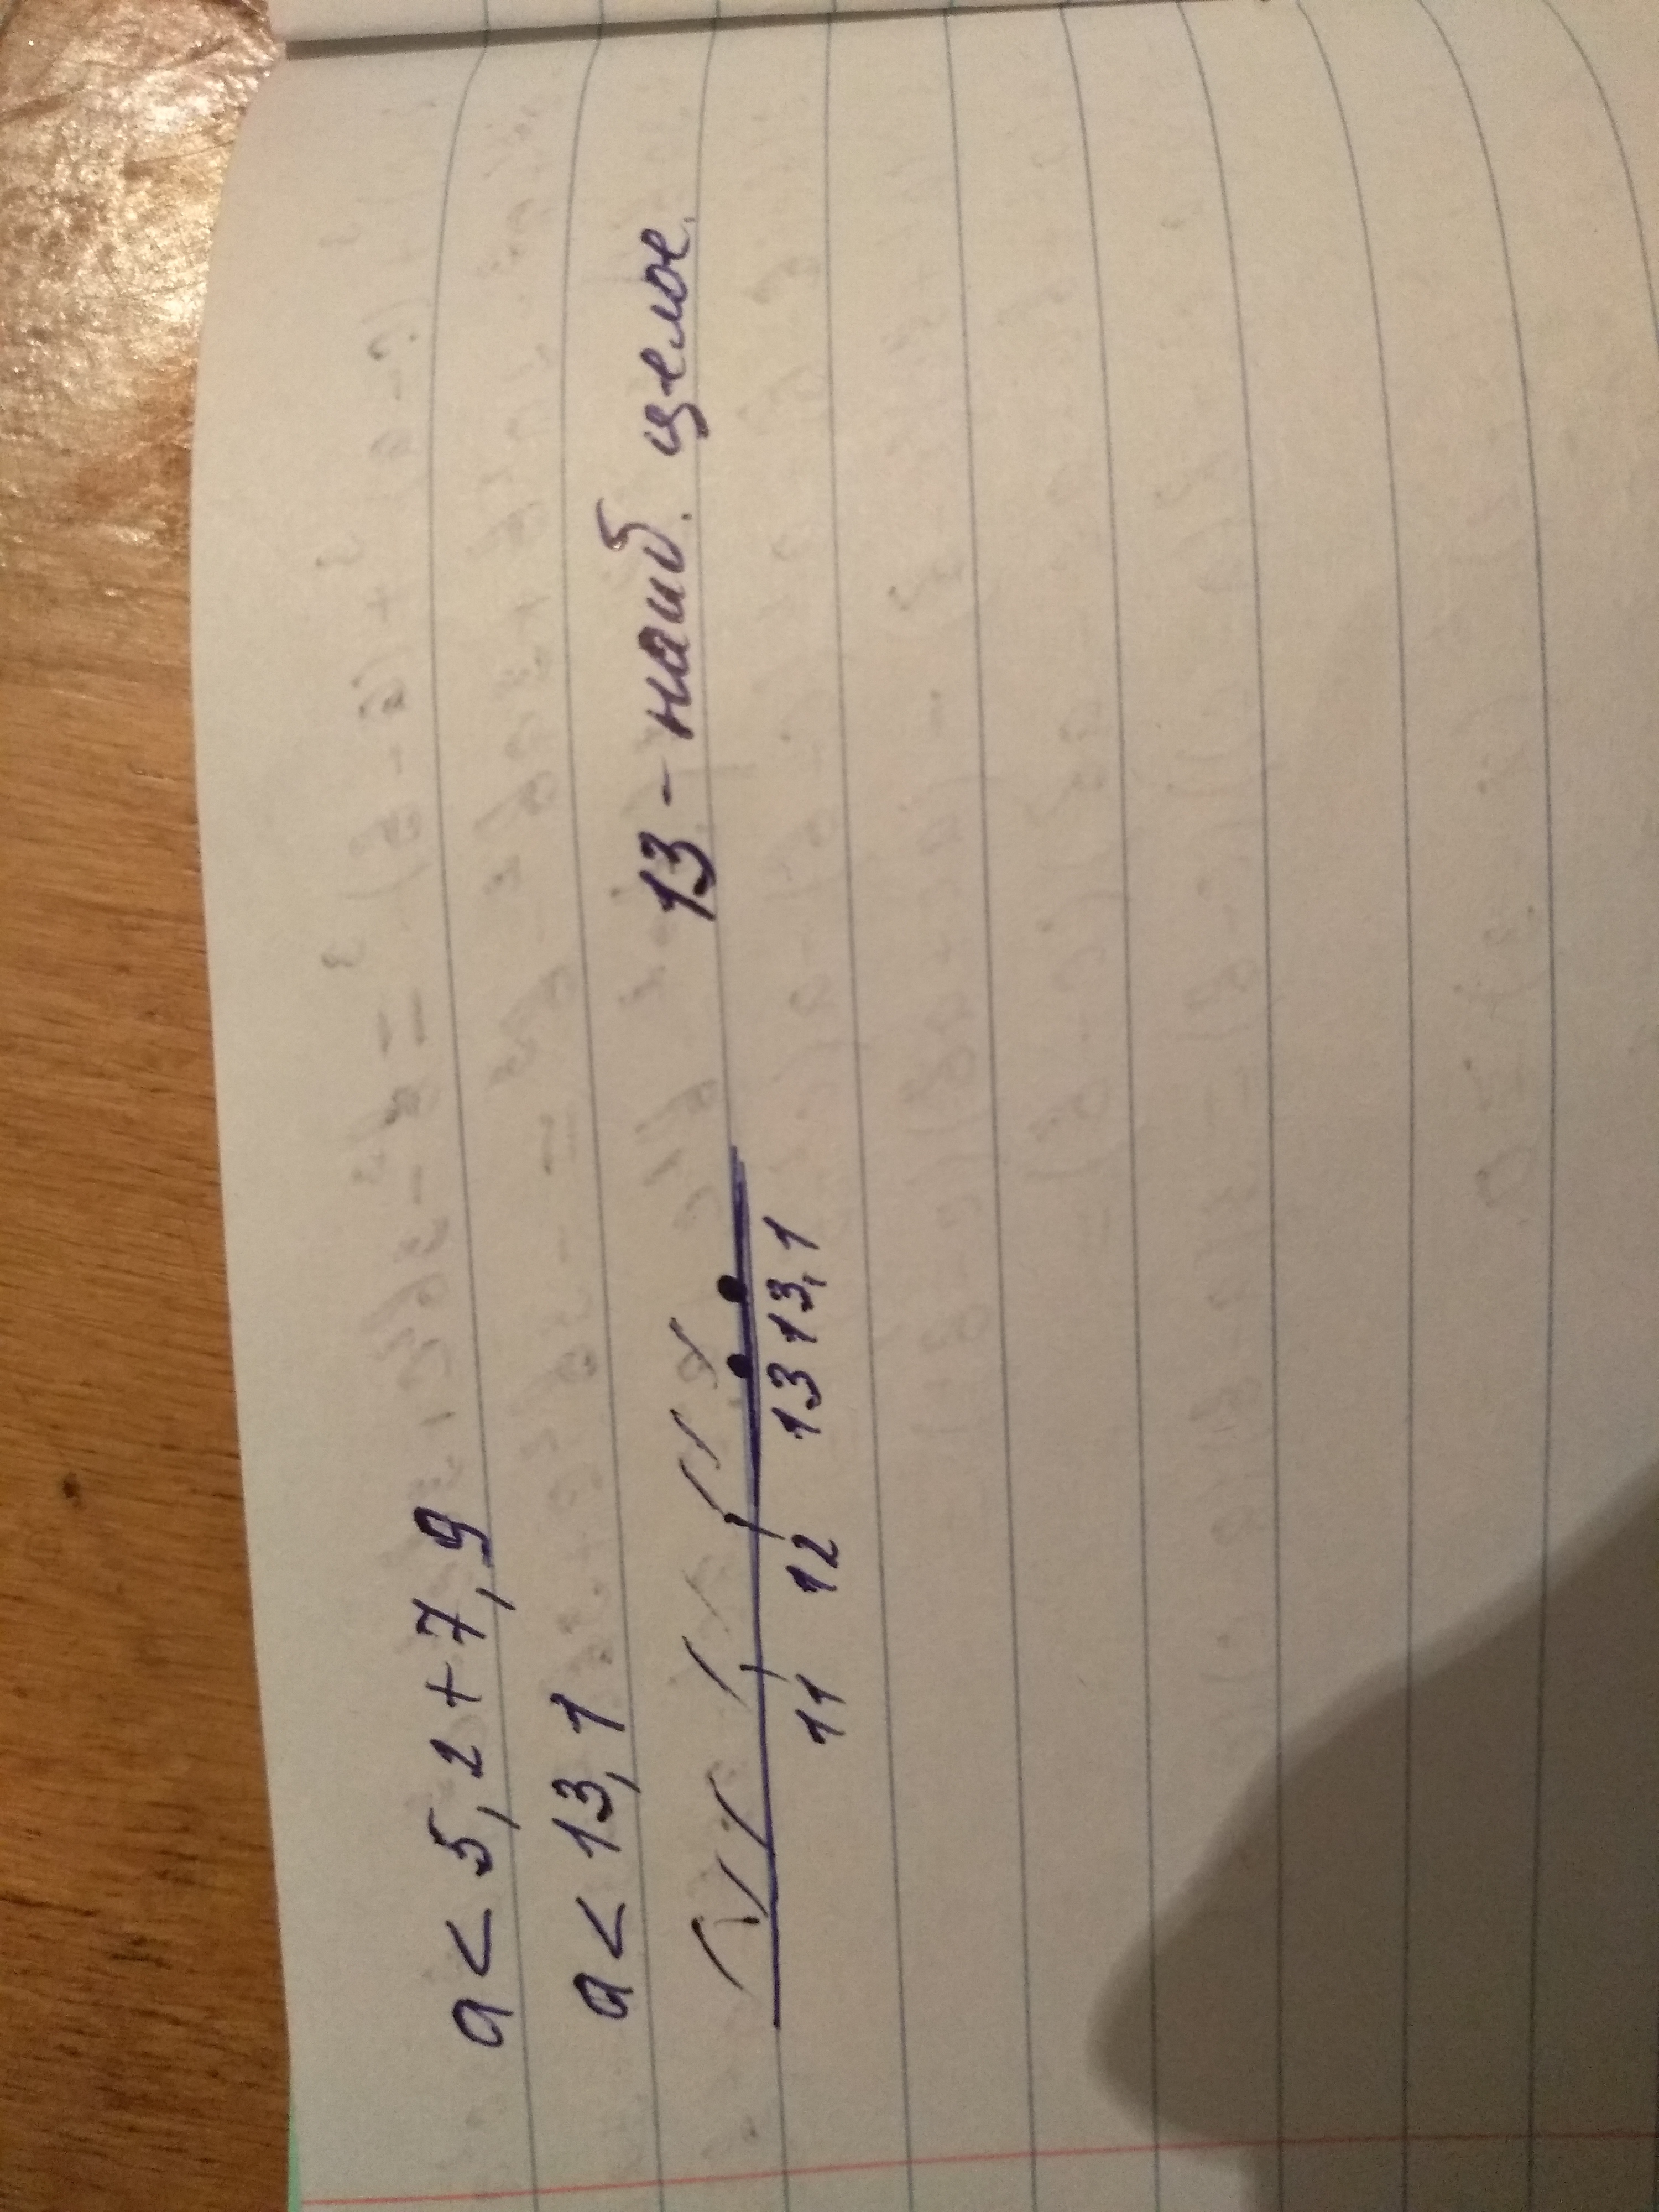 a < 5,2 + 7,9
a < 13,1
13 - наиб. целое.
11 12 13 13,1